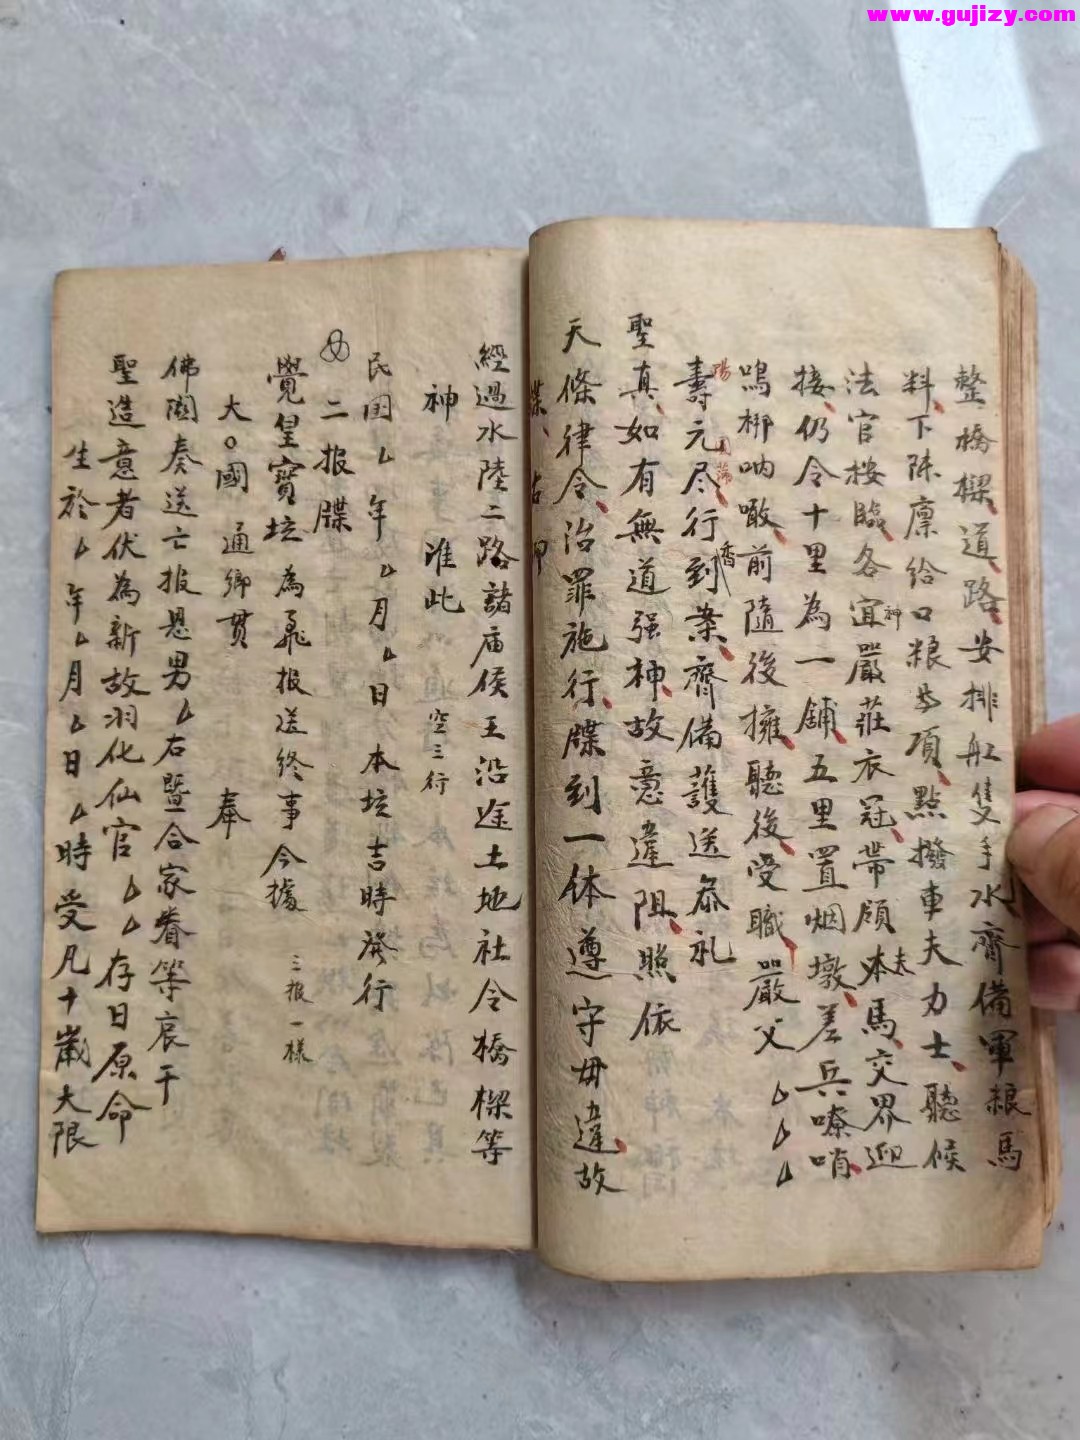 www.gujizy.com
整橋樑道路安排船隻手水齊備軍粮馬
料下陈廪給口粮等項點撥車夫力士聽候
法官按臨各宜嚴莊衣冠帶領本馬交界迎
神
夫
接仍令十里為一鋪五里置烟墩差兵嘹哨
鳴梆呐㗾前隨後擁聽後受職嚴父厶厶厶
陽
壽元尽行到案齊備護送叅礼
香
聖真如有無道强神故意違阻照依
天條律令治罪施行牒到一体遵守毋違故
牒
經過水陸二路諸庙侯王沿途土地社令橋樑等
神 准此 空三行
民国厶年厶月厶日 本坛吉時發行
二报牒
覺皇寶坛為飛报送終事今據 三报一樣
大〇國 通鄉贯 奉
佛闡奏送亡报恩男厶右暨合家眷等哀干
聖造意者伏為新故羽化仙官厶厶存日原命
生於厶年厶月厶日厶時受凡十歲大限